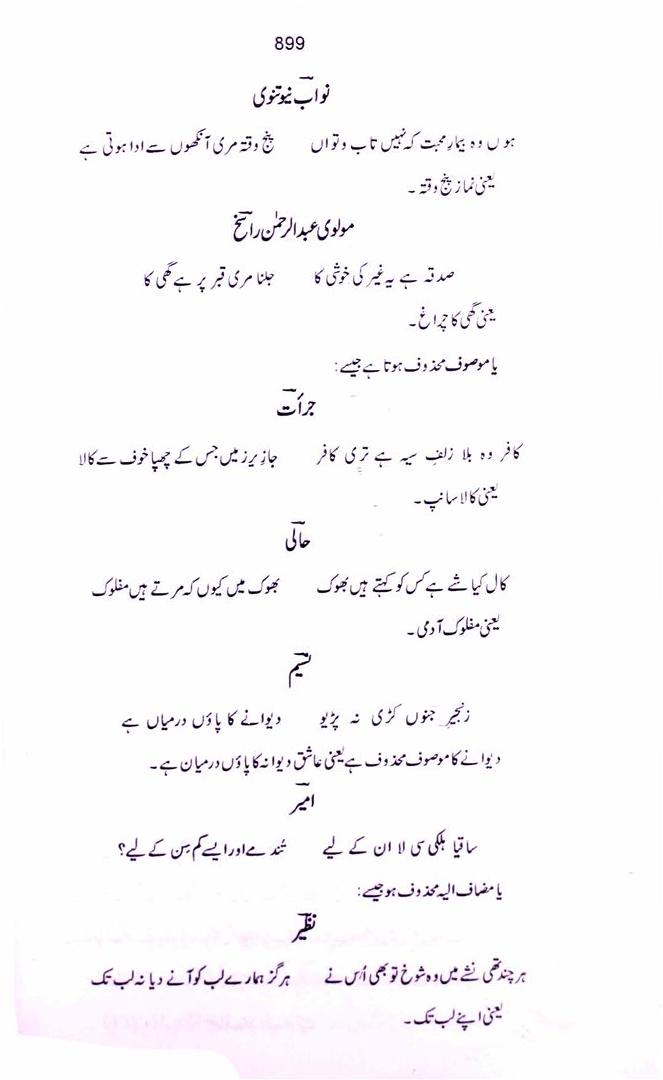 899
نواب نیوتنوی
ہوں وہ بیمارِ محبت کہ نہیں تاب و تواں پنج وقتہ مری آنکھوں سے ادا ہوتی ہے
یعنی نماز پنج وقتہ۔
مولوی عبدالرحمٰن راسخ
صدقہ ہے یہ غیر کی خوشی کا جلنا مری قبر پر ہے گھی کا
یعنی گھی کا چراغ۔
یا موصوف محذوف ہوتا ہے جیسے:
جرأت
کافر وہ بلا زلفِ سیہ ہے تری کافر جا زیرِ زمیں جس کے چھپا خوف سے کالا
یعنی کالا سانپ۔
حالی
کال کیا شے ہے کس کو کہتے ہیں بھوک بھوک میں کیوں کہ مرتے ہیں مفلوک
یعنی مفلوک آدمی۔
نسیم
زنجیرِ جنوں کڑی نہ پڑیو دیوانے کا پاؤں درمیاں ہے
دیوانے کا موصوف محذوف ہے یعنی عاشق دیوانہ کا پاؤں درمیان ہے۔
امیر
ساقیا ہلکی سی لا ان کے لیے تُند مے اور ایسے کم سِن کے لیے؟
یا مضاف الیہ محذوف ہو جیسے:
نظیر
ہر چند تھی نشے میں وہ شوخ تو بھی اُس نے ہرگز ہمارے لب کو آنے دیا نہ لب تک
یعنی اپنے لب تک۔